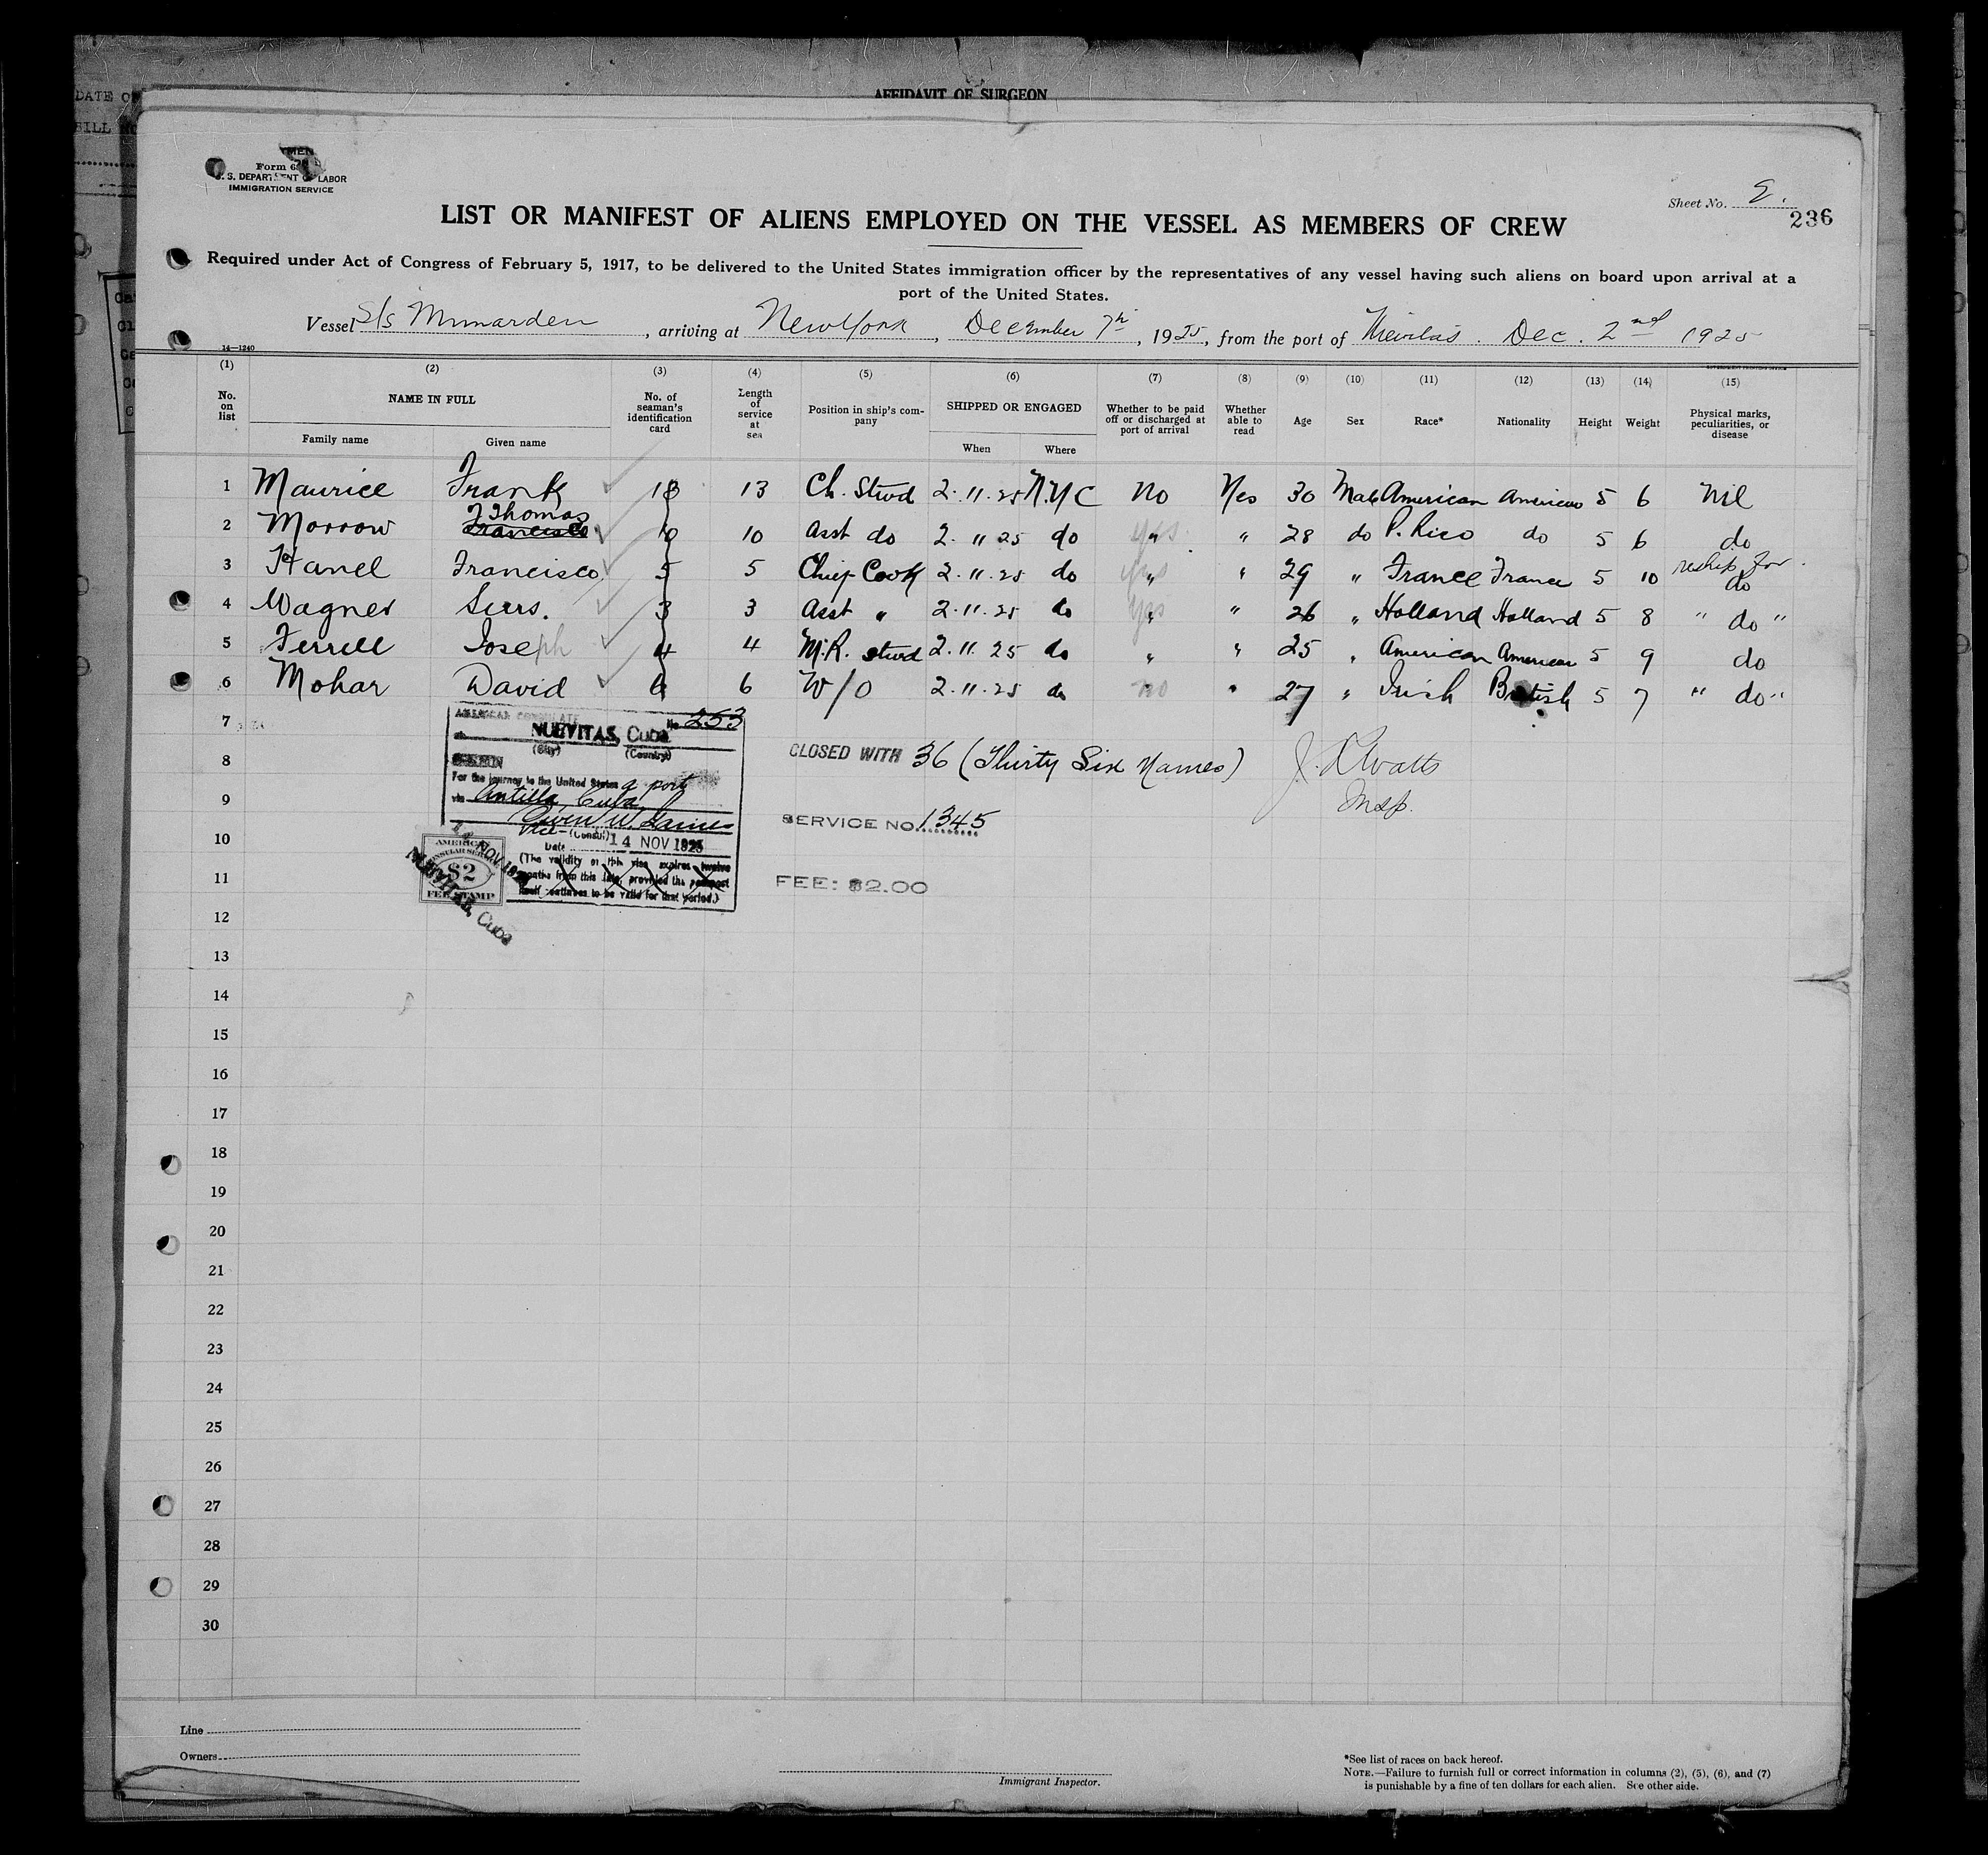 AFFIDAVIT OF SURGEON
DATE O
BILL
Form 6
U. S. DEPARTMENT OF LABOR
IMMIGRATION SERVICE
Sheet No. 2.
236
LIST OR MANIFEST OF ALIENS EMPLOYED ON THE VESSEL AS MEMBERS OF CREW
Required under Act of Congress of February 5, 1917, to be delivered to the United States immigration officer by the representatives of any vessel having such aliens on board upon arrival at a
port of the United States.
Vessel S/s Munarden, arriving at New York, December 7th, 1925, from the port of Dec. 2nd 1925
14—1240
(1) (2) (3) (4) (5) (6) (7) (8) (9) (10) (11) (12) (13) (14) (15)
No. on list NAME IN FULL No. of seaman's identification card Length of service at sea Position in ship's company SHIPPED OR ENGAGED Whether to be paid off or discharged at port of arrival Whether able to read Age Sex Race* Nationality Height Weight Physical marks, peculiarities, or disease
Family name Given name When Where
1 Maurice Frank 13 13 Ch. Stwd 2.11.25 N.Y.C No Yes 30 Male American American 5 6 Nil
2 Morrow J Thomas Francisco 10 10 Asst do 2.11 25 do yes " 28 do P. Rico do 5 6 do
3 Hanel Francisco 5 5 Chief Cook 2.11.25 do yes " 29 " France France 5 10 reship for do
4 Wagner 3 3 Asst " 2.11.25 do yes " 26 " Holland Holland 5 8 " do "
5 Ferrell Joseph 4 4 M.R. stwd 2.11.25 do " " 25 " American American 5 9 do
6 Mohar David 6 6 W/O 2.11.25 do no " 27 " Irish British 5 7 " do "
7
8
9
10
11
12
13
14
15
16
17
18
19
20
21
22
23
24
25
26
27
28
29
30
AMERICAN CONSULATE No 253
at NUEVITAS, Cuba
(City) (Country)
For the journey to the United States a port
via Antilla, Cuba
Vice-(Consul)
Date 14 NOV 1925
(The validity of this visa expires twelve
months from this date, provided the passport
itself continues to be valid for that period.)
AMERICAN
CONSULAR SERVICE
$2
FEE STAMP
14 NOV 1925
NUEVITAS, Cuba
CLOSED WITH 36 (Thirty Six Names)
J. L Watts
Insp.
SERVICE NO. 1345
FEE: $2.00
Line
Owners
Immigrant Inspector.
*See list of races on back hereof.
NOTE.—Failure to furnish full or correct information in columns (2), (5), (6), and (7)
is punishable by a fine of ten dollars for each alien. See other side.